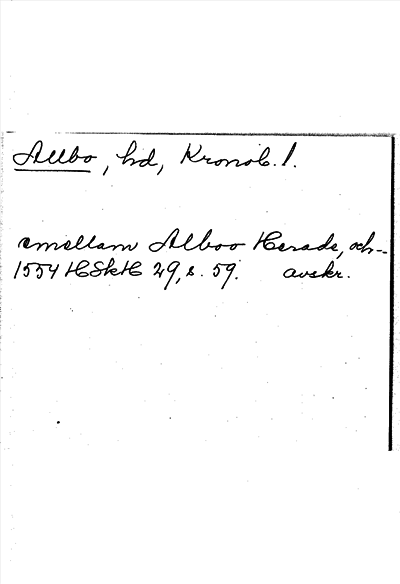 Allbo, hd, Kronob. l.
emellam Alboo Herade, och--
1554 HSkH 29, s. 59. avskr.